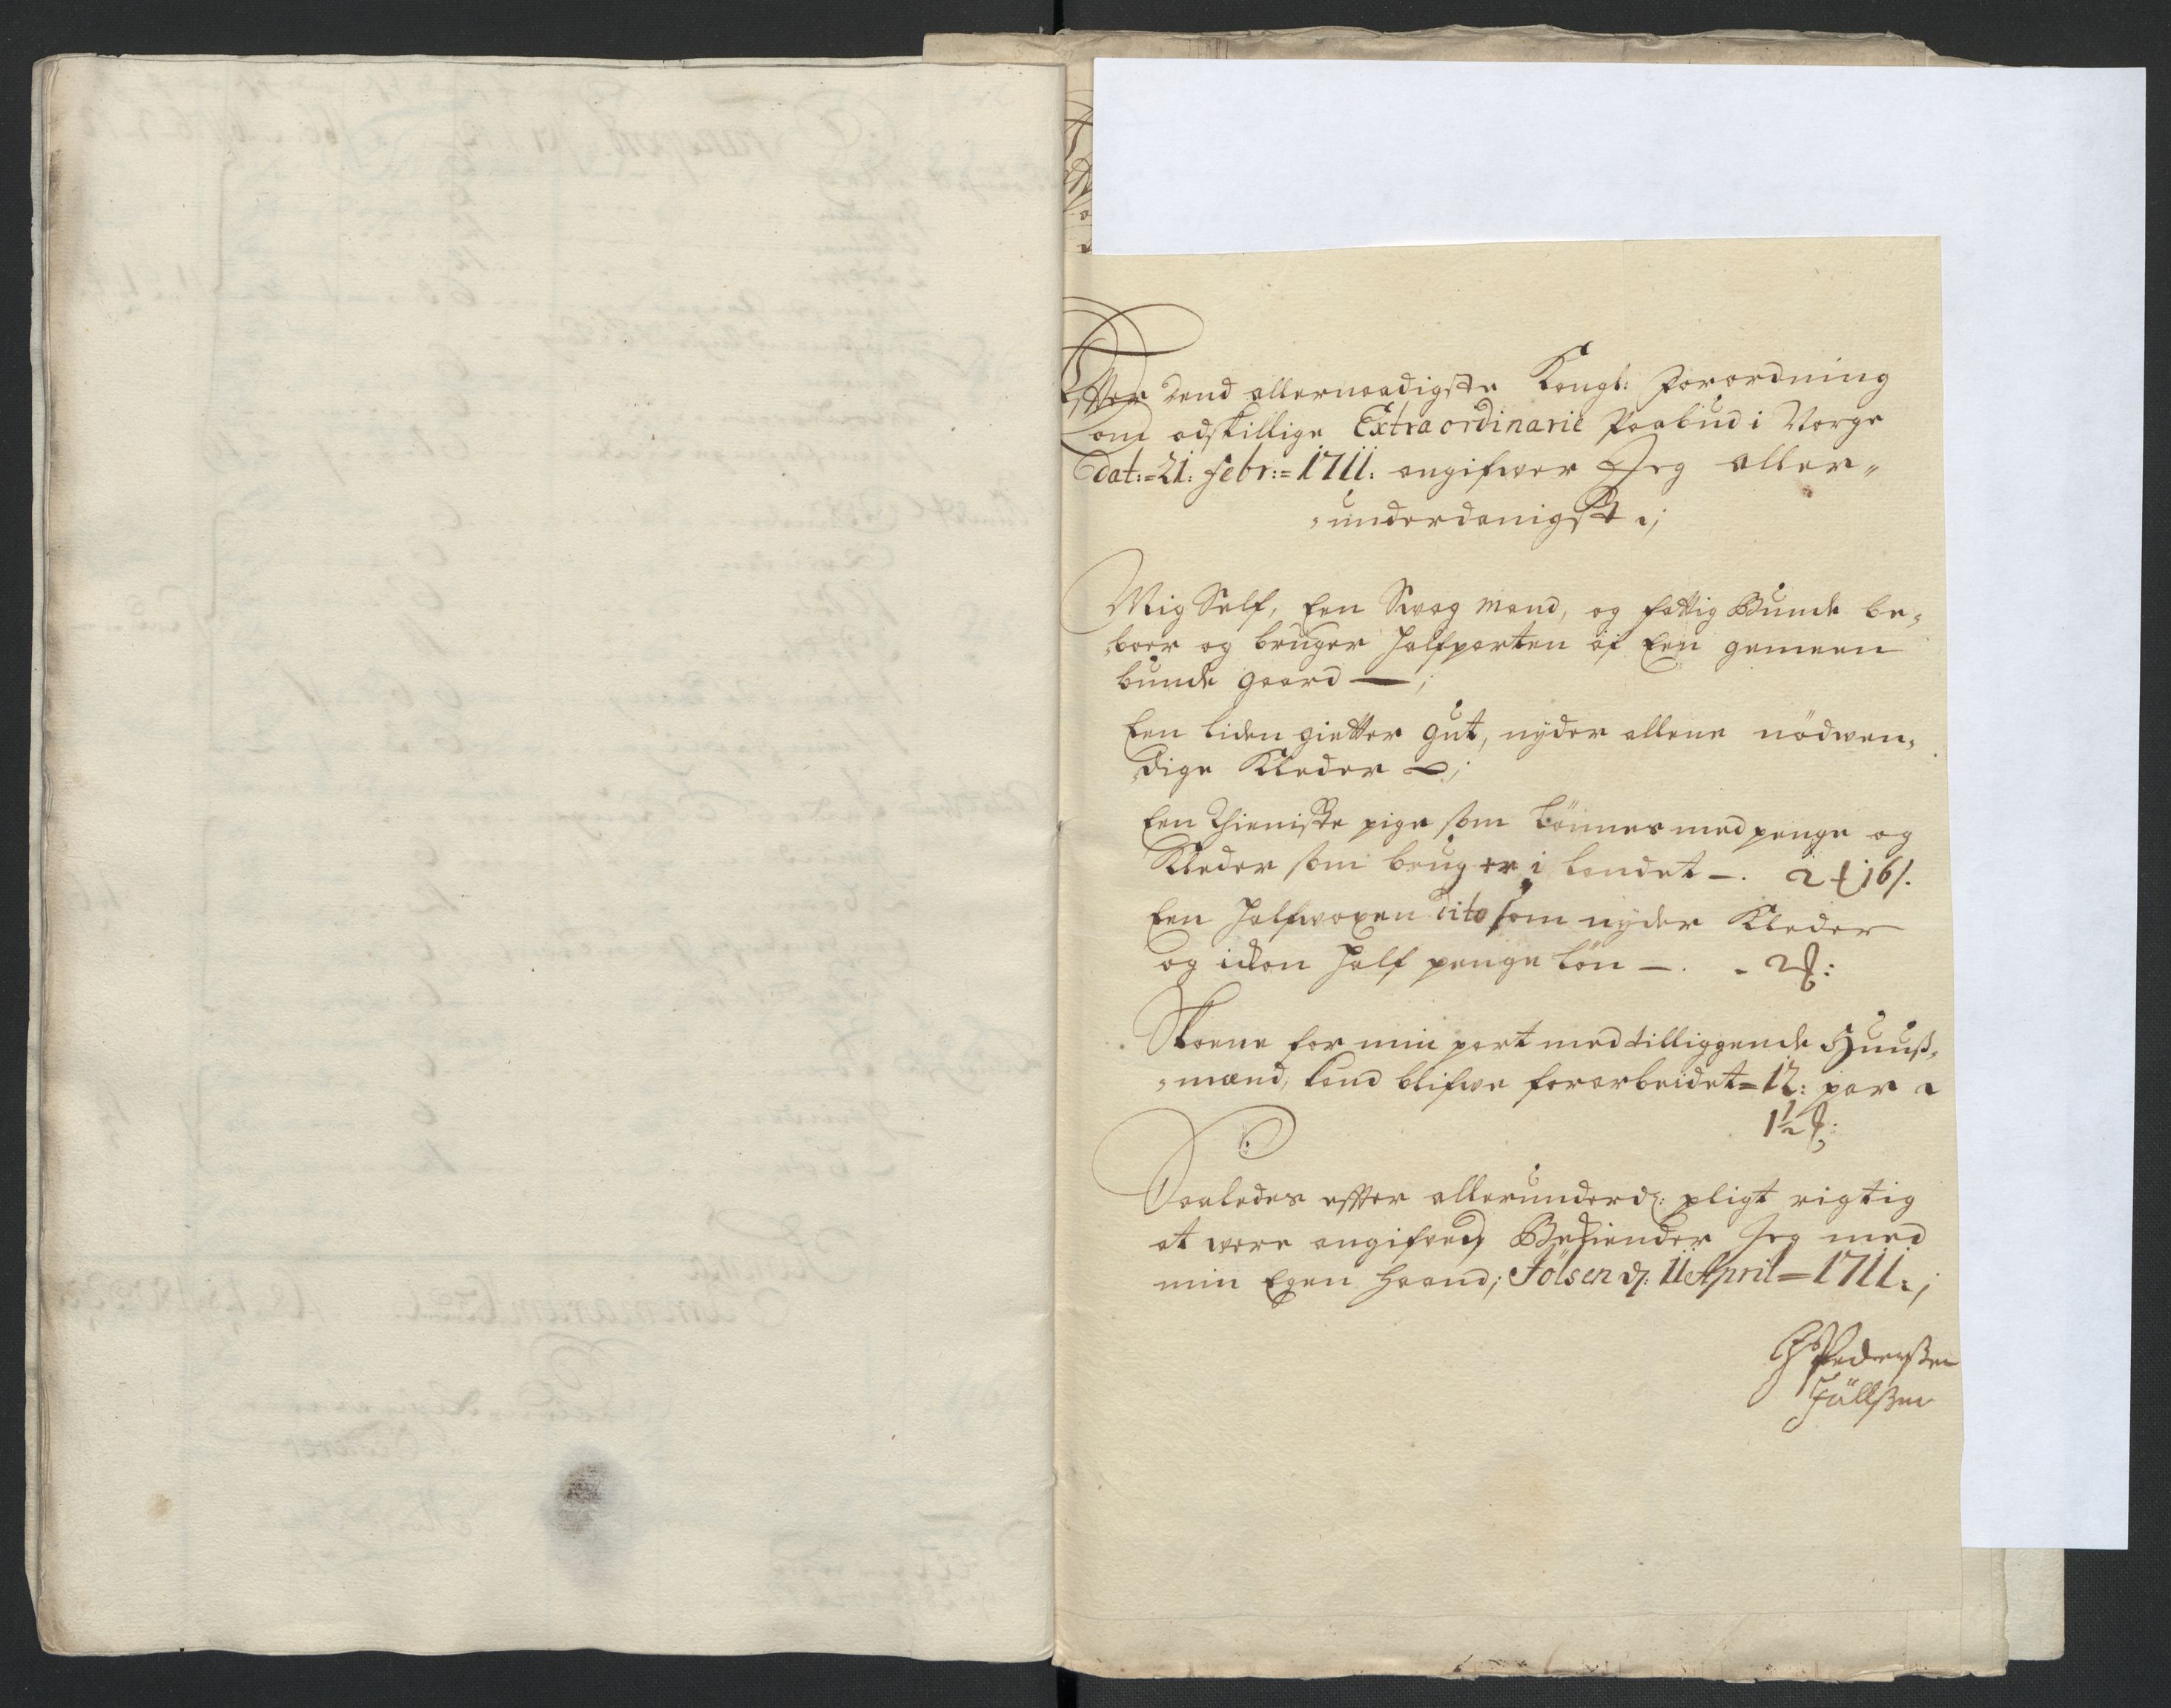 Effter dend allernaadigste Kongl: Forordning
om adskillige Extraordinarie Paabud i Norge
dat:=21: Febr:=1711: angifwer Jeg aller„
„underdanigst ;
Mig Self, een Swag mand, og fattig Bunde be„
„boer og bruger Halfparten af Een gemeen
bunde gaard —;
Een liden gietter gut, nyder allene nödwen„
„dige Klæder ;
Een Thieniste pige som lönnes med penge og
Klæder som bruger i landet —. 2
Een Halfwoxen dito som nyder Kleder
og ickon Half penge lön —. - 2
Skoene for min part med tilliggende Huuß„
„mænd, kand blifwe forarbeidet=12: par a
1½
Saaledes effter allerunderd: pligt rigtig
at were angifved, Bekiender Jeg med
min Egen Haand; Jölsen d: 11 April=1711:;
Pederßen
Jüllßen